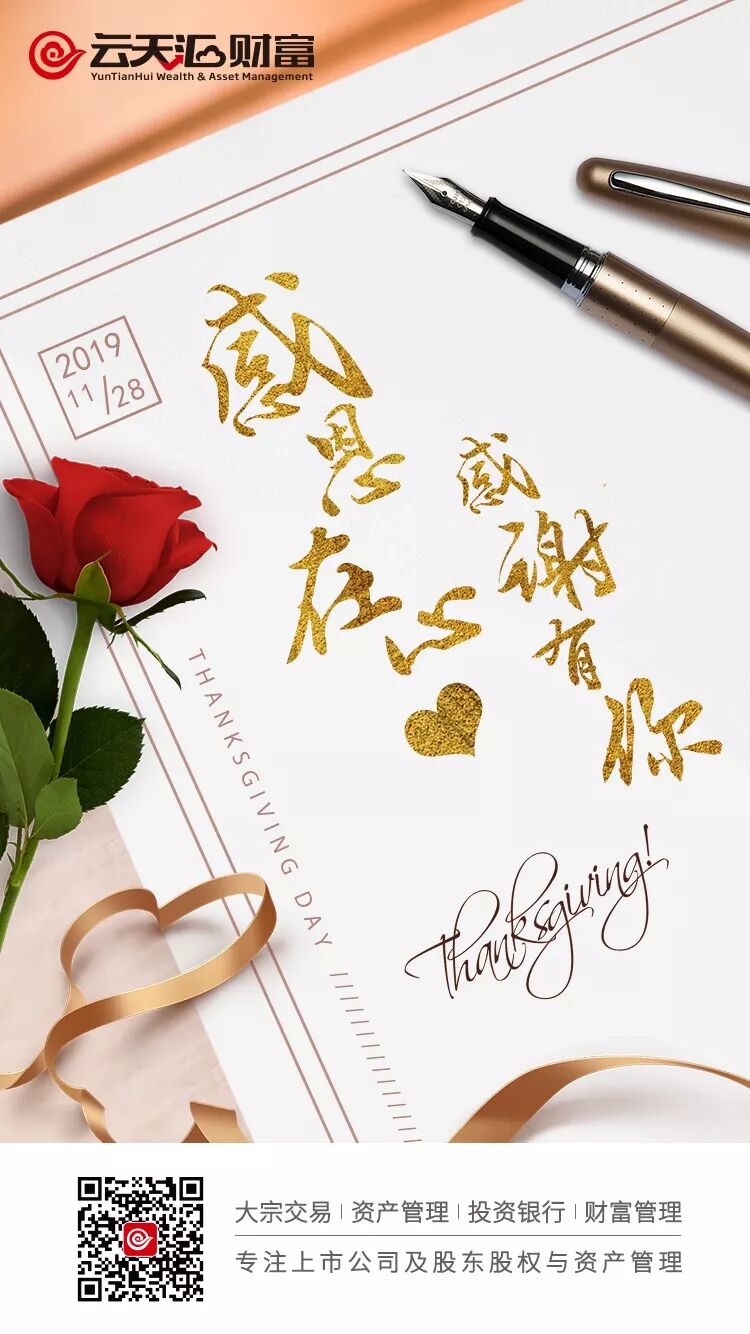 云天汇财富
YunTianHui Wealth & Asset Management
2019
11/28
感恩在心
感谢有你
THANKSGIVING DAY
Thanksgiving!
大宗交易|资产管理|投资银行|财富管理
专注上市公司及股东股权与资产管理